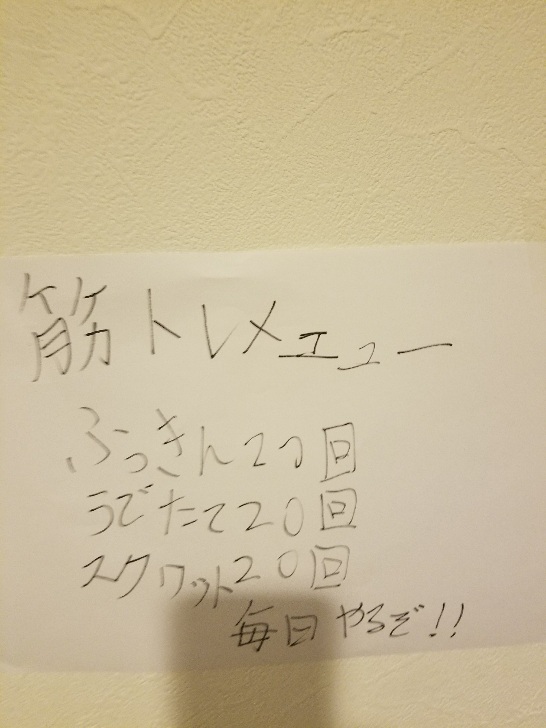 筋トレメエュー
ふっきん20回
うでたて20回
スクワット20回
毎日やるぞ!!